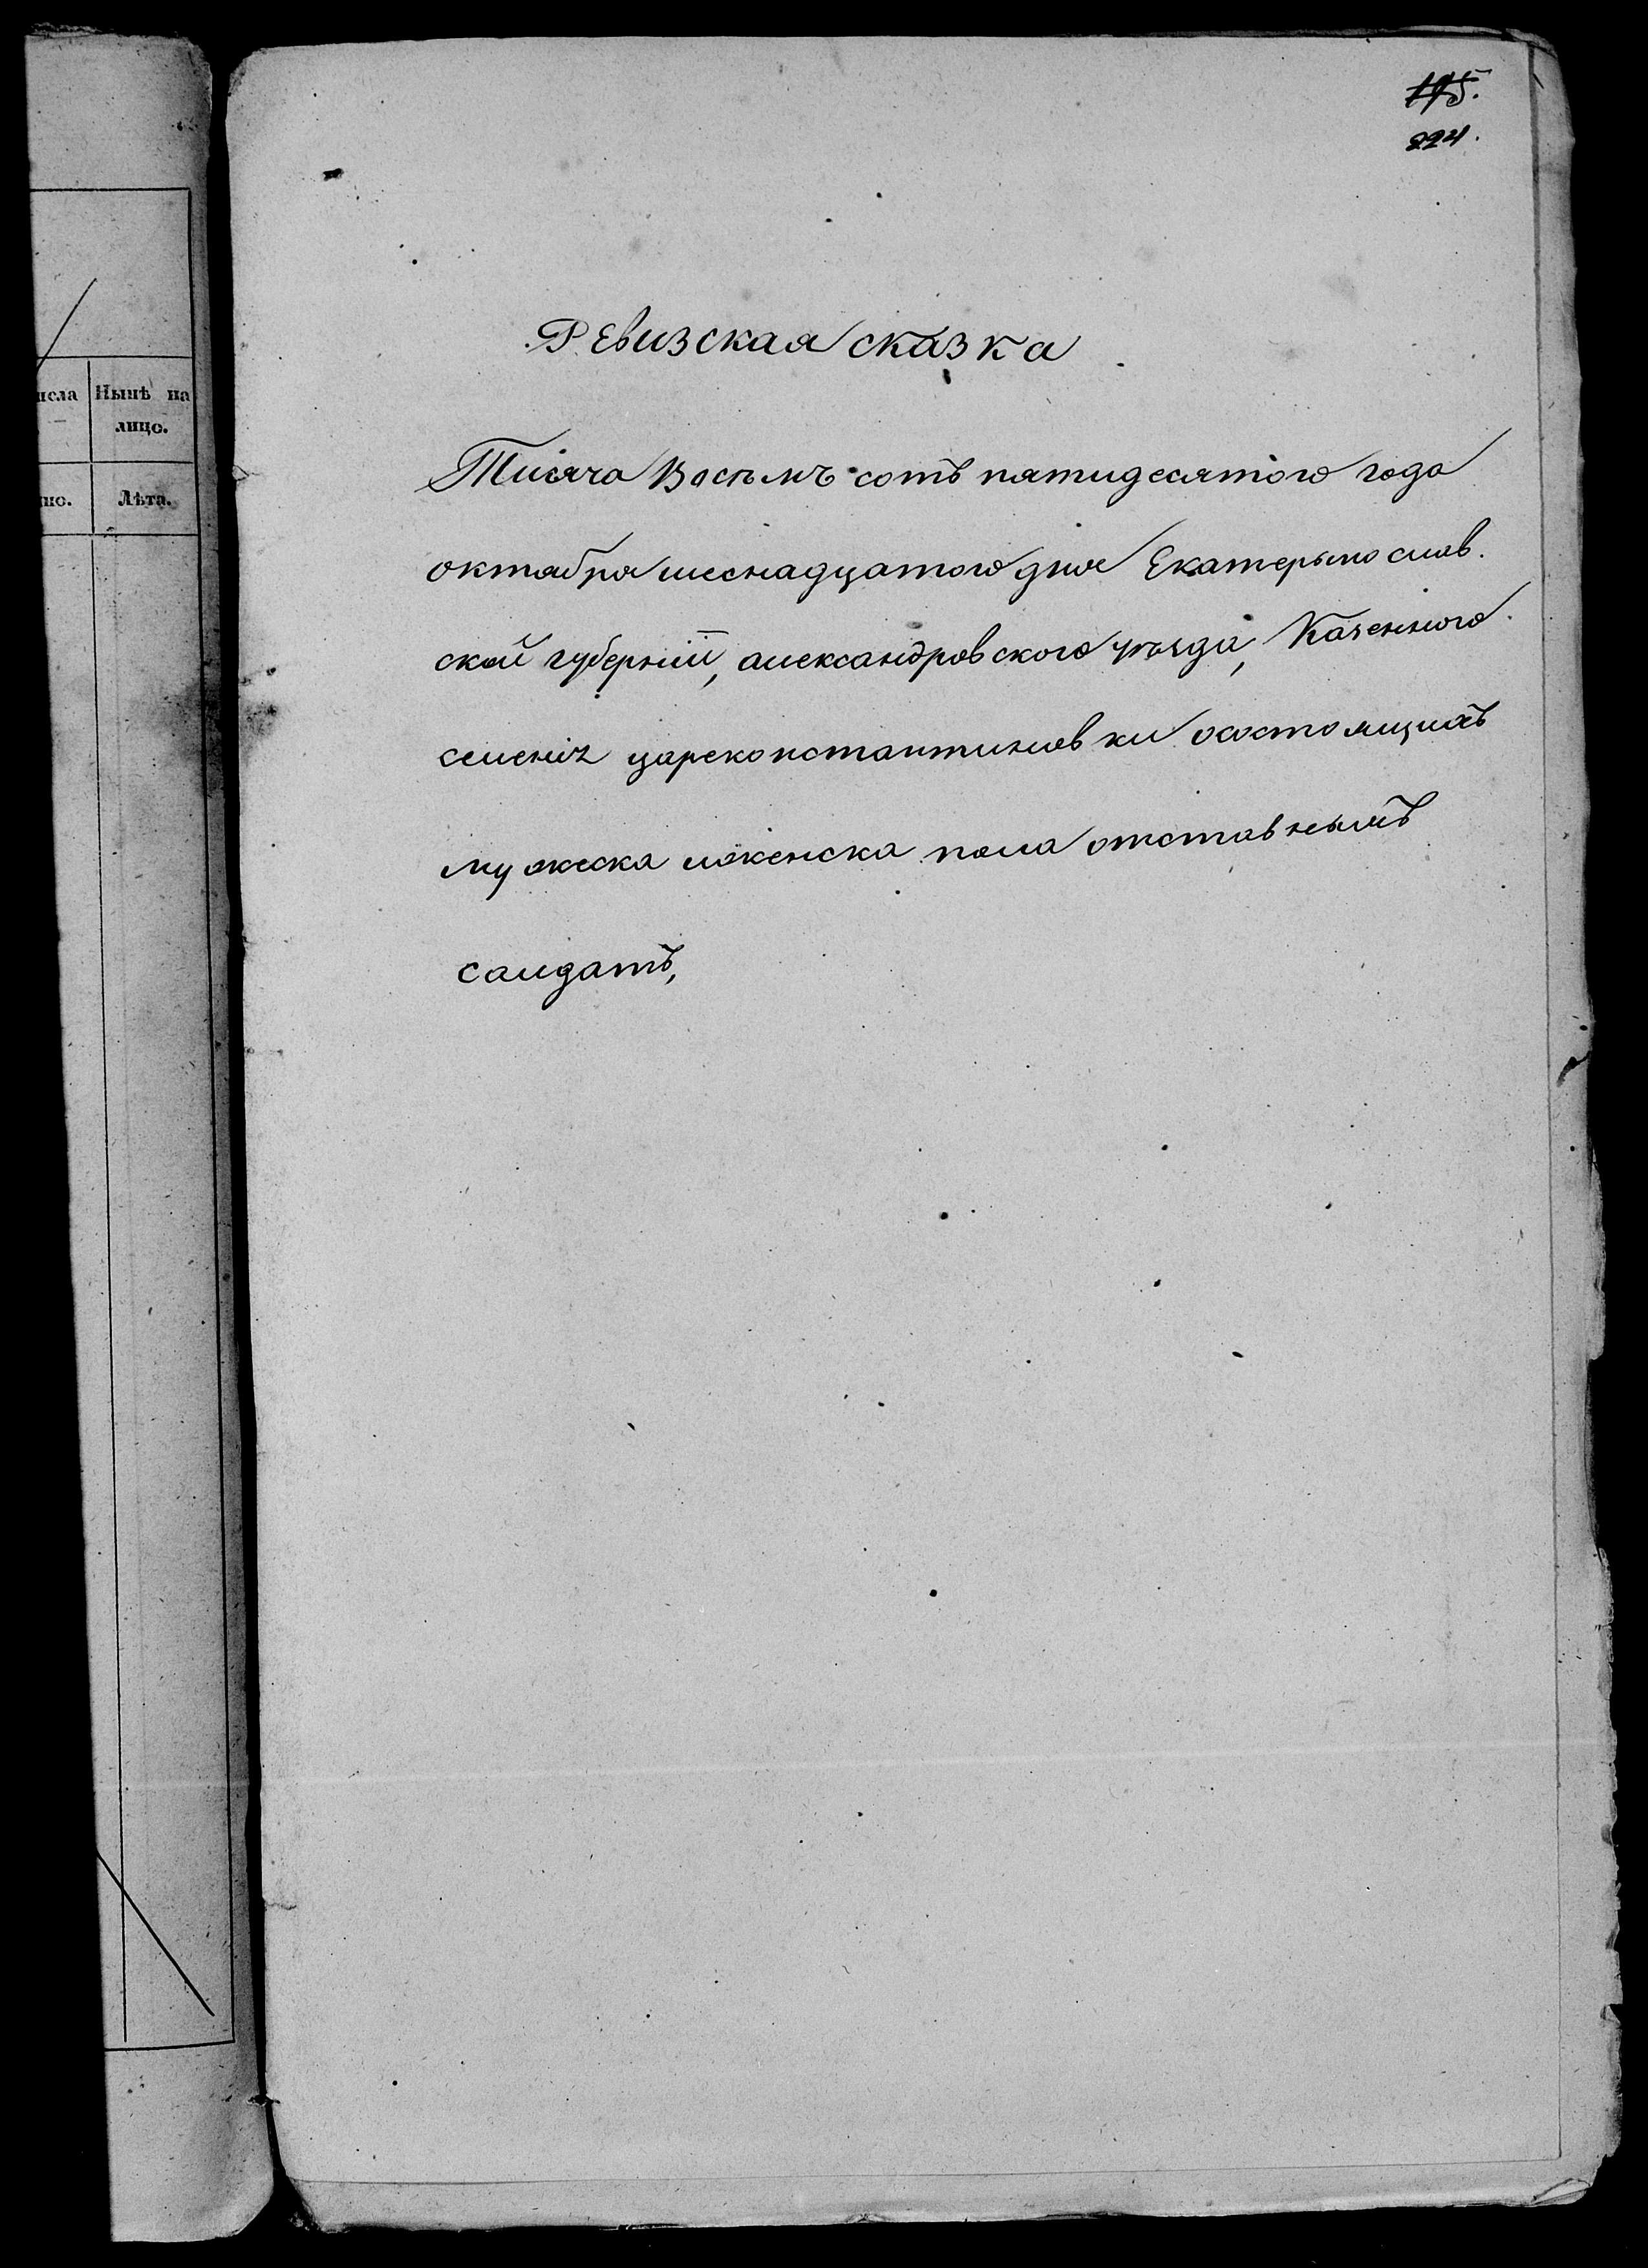 115.
224.
Ревизская сказка
Тисяча Восъмъ сотъ пятидесятого года
октабра шеснадцатого дня Екатерынослав.
ской губерніи, александровского уъзда, Казенного
селенія цареконстантиновки осостоящихъ
мужеска иженска пола отставныхъ
салдатъ,
исла
Нынѣ на
лицо.
но.
Лѣта.